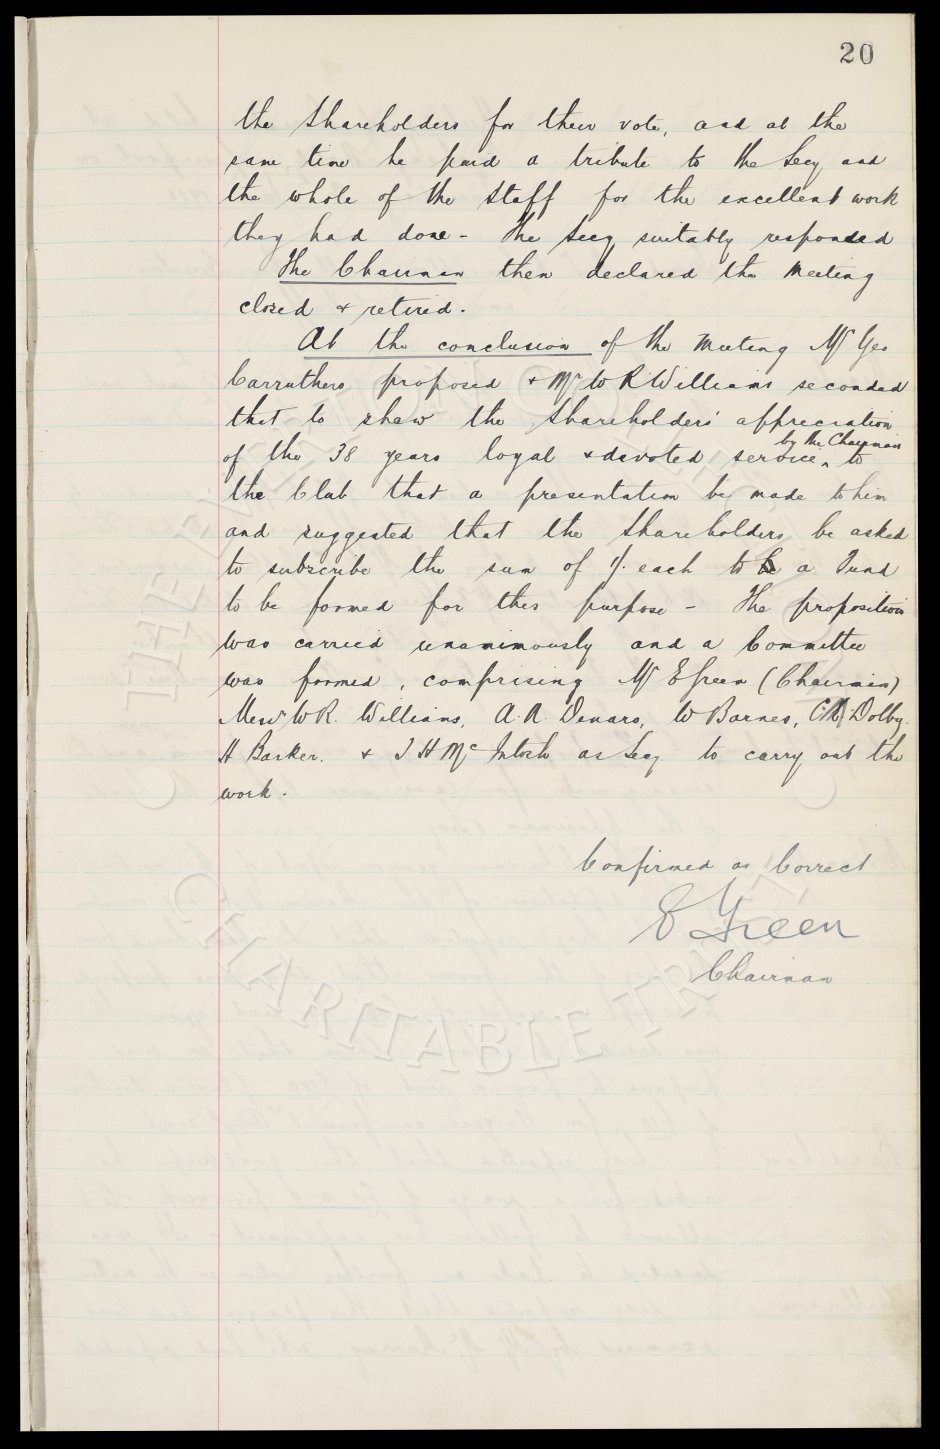 20
the Shareholders for their vote, and at the
same time he paid a tribute to the Secy and
the whole of the Staff for the excellent work
they had done - The Secy suitably responded
The Chairman then declared the Meeting
closed & retired.
At the conclusion of the Meeting Mr Geo
Carruthers proposed & Mr W R Williams seconded
that to shew the Shareholders' appreciation
by the Chairman
of the 38 years loyal & devoted service ^ to
the Club that a presentation be made to him
and suggested that the Shareholders be asked
to subscribe the sum of 1/- each to a Fund
to be formed for this purpose - The proposition
was carried unanimously and a Committee
was formed, comprising Mr E Green (Chairman)
Messrs W R. Williams, A. R. Denaro, W Barnes, Dolby.
H Barker. & J H Mc Intosh as Secy to carry out the
work.
Confirmed as Correct
E Green
Chairman
THE EVERTON COLLECTION
CHARITABLE TRUST